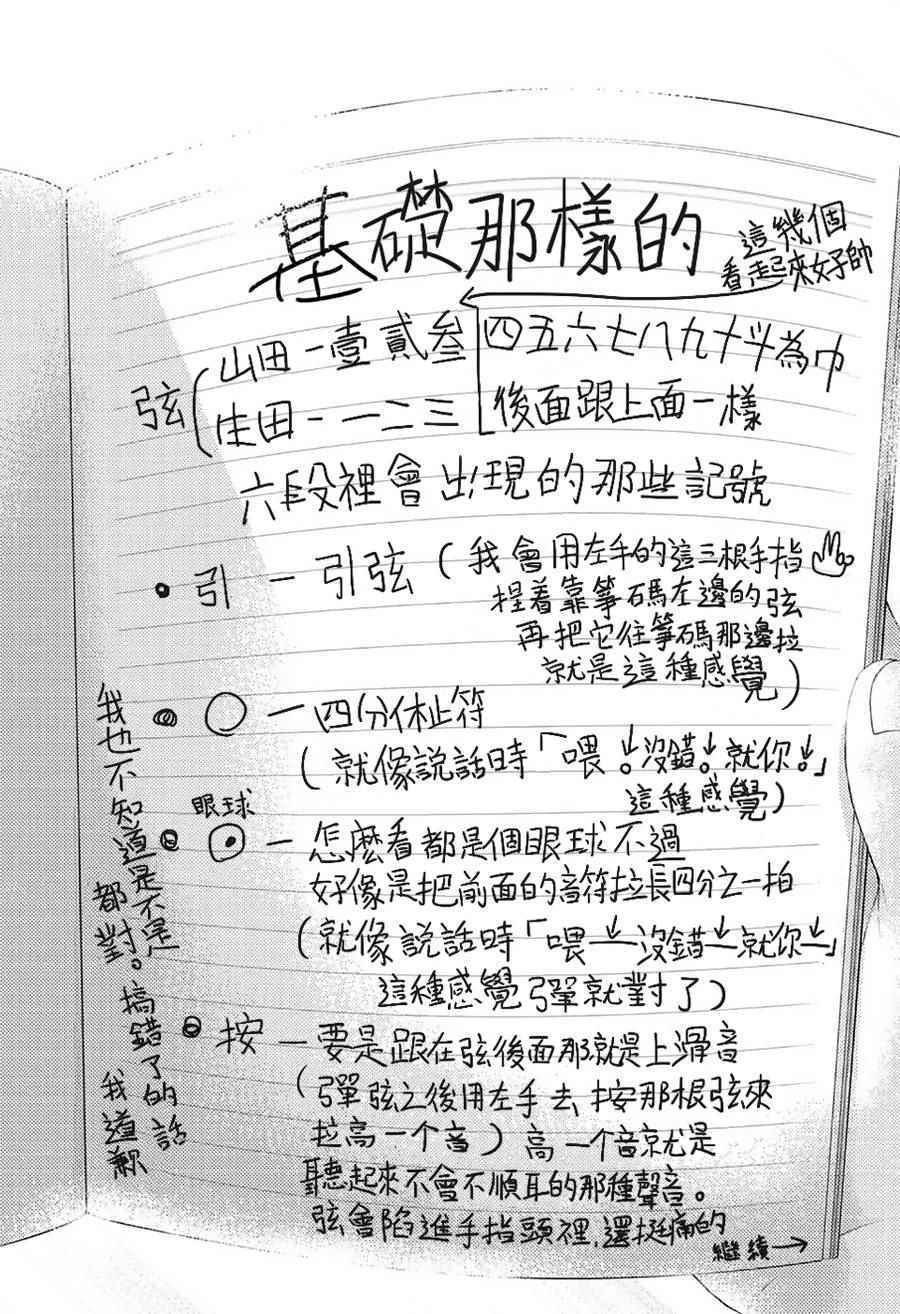 基礎那樣的
這幾個
看起來好帥
弦
山田－壹貳叁
生田－一二三
四五六七八九十斗為巾
後面跟上面一樣
六段裡會出現的那些記號
•引－引弦(我會用左手的這三根手指
捏着靠箏碼左邊的弦
再把它往箏碼那邊拉
就是這種感覺)
•○－四分休止符
(就像說話時「喂↓。沒錯↓。就你↓。」
這種感覺)
眼球
•⊙－怎麼看都是個眼球不過
好像是把前面的音符拉長四分之一拍
(就像說話時「喂－沒錯－就你－」
這種感覺彈就對了)
•按－要是跟在弦後面那就是上滑音
(彈弦之後用左手去按那根弦來
拉高一个音)高一个音就是
聽起來不會不順耳的那種聲音。
弦會陷進手指頭裡,還挺痛的
繼續→
我也不知道是不是
都對。搞錯了的話
我道歉